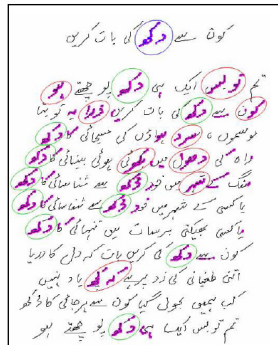 کون سے دکھ کی بات کریں
تم تو بس ایک ہی دکھ پوچھتے ہو
کون سے دکھ کی بات کریں ذرا یہ تو بتا
موسموں، سرد ہواؤں کی مسیحائی کا دکھ
راہ کی دھول میں کھوئی ہوئی بینائی کا دکھ
سنگ کے شہر میں خود سے شناسائی کا دکھ
یا کسی کے شہر میں خود سے شناسائی کا دکھ
یا کسی بھیگتی برسات میں تنہائی کا دکھ
کون سے دکھ کی کریں بات کہ دل کا دریا
اتنی طغیانی کی زد پر ہے کہ کچھ یاد نہیں
کب ہمیں بھول گیا کون سے ہرجائی کا دکھ
تم تو بس ایک ہی دکھ پوچھتے ہو